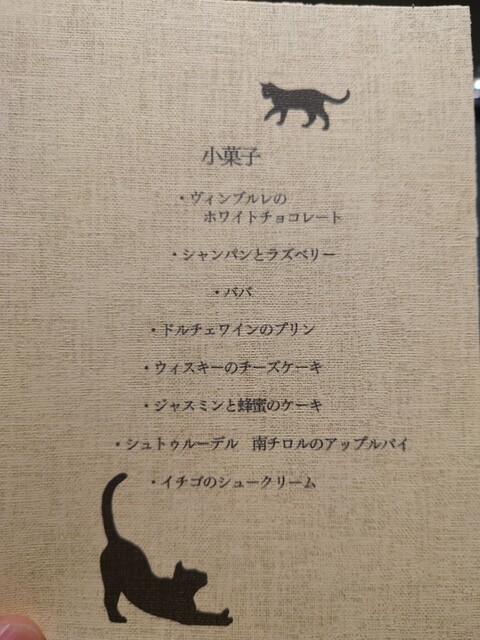 小菓子
・ヴィンブルレの
ホワイトチョコレート
・シャンパンとラズベリー
・ババ
・ドルチェワインのプリン
・ウィスキーのチーズケーキ
・ジャスミンと蜂蜜のケーキ
・シュトゥルーデル　南チロルのアップルパイ
・イチゴのシュークリーム